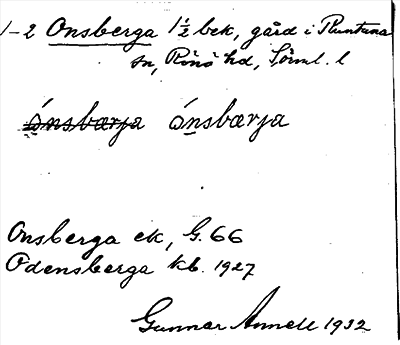 1-2 Onsberga 1½ bek, gård i Runtuna
sn, Rönö hd, Söml. l
ónsbærja ónsbærja
Onsberga ek, G. 66
Odensberga kb. 1927
Gunnar Annell 1932